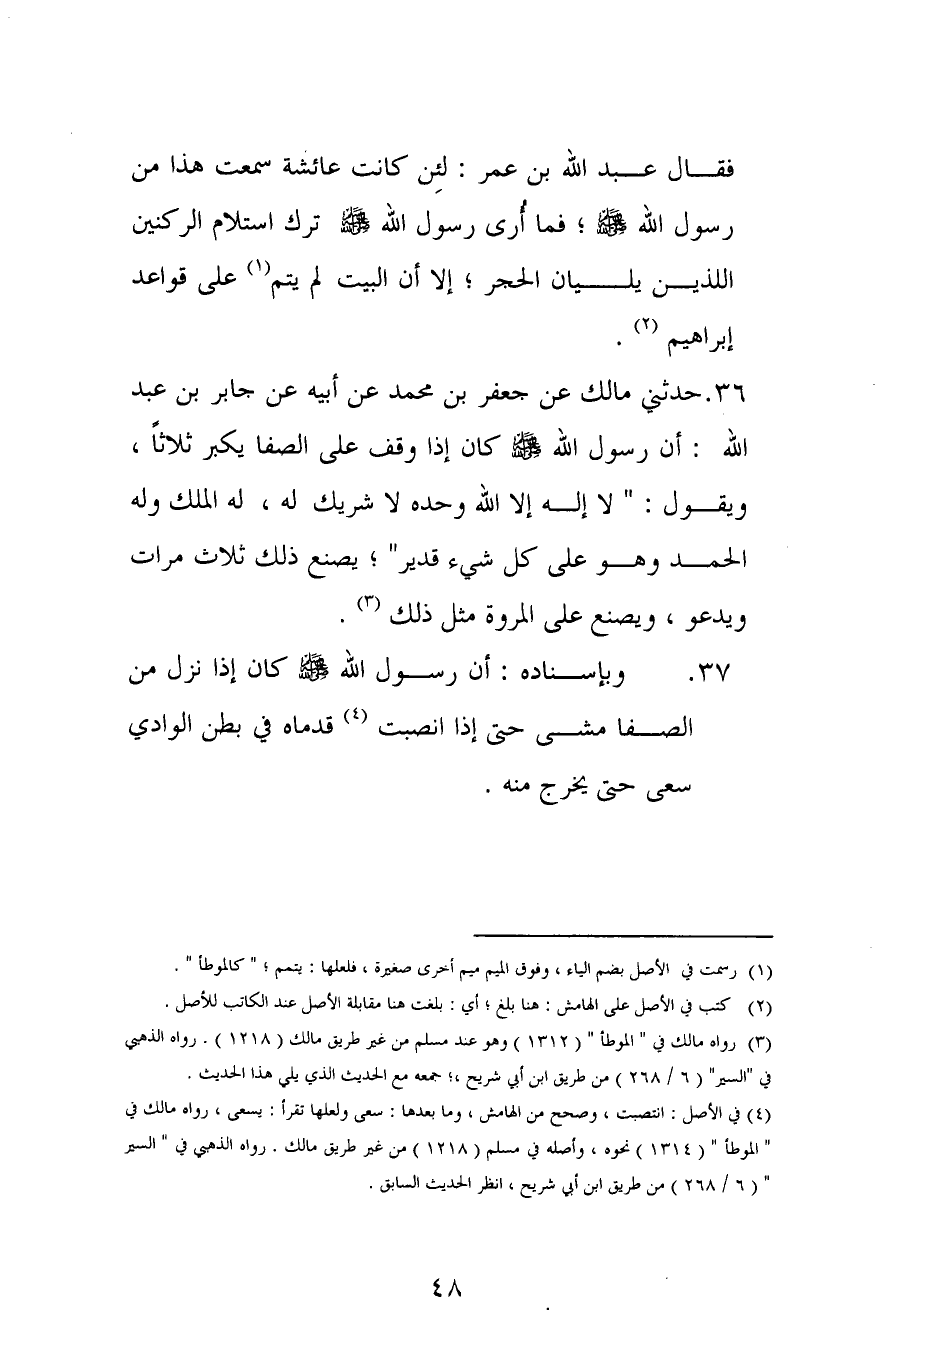 فقـــال عـــبد الله بن عمر : لئن كانت عائشة سمعت هذا من
رسول الله ﷺ ؛ فما أُرى رسول الله ﷺ ترك استلام الركنين
اللذيـــن يلـــــيان الحجر ؛ إلا أن البيت لم يتم(١) على قواعد
إبراهيم (٢) .
٣٦.حدثني مالك عن جعفر بن محمد عن أبيه عن جابر بن عبد
الله : أن رسول الله ﷺ كان إذا وقف على الصفا يكبر ثلاثاً ،
ويقـــول : " لا إلـــه إلا الله وحده لا شريك له ، له الملك وله
الحمـــد وهـــو على كل شيء قدير" ؛ يصنع ذلك ثلاث مرات
ويدعو ، ويصنع على المروة مثل ذلك (٣) .
٣٧. وبإســـناده : أن رســـول الله ﷺ كان إذا نزل من
الصـــفا مشـــى حتى إذا انصبت (٤) قدماه في بطن الوادي
سعى حتى يخرج منه .
(١) رسمت في الأصل بضم الياء ، وفوق الميم ميم أخرى صغيرة ، فلعلها : يتمم ؛ " كالموطأ " .
(٢) كتب في الأصل على الهامش : هنا بلغ ؛ أي : بلغت هنا مقابلة الأصل عند الكاتب للأصل .
(٣) رواه مالك في " الموطأ " ( ١٣١٢ ) وهو عند مسلم من غير طريق مالك ( ١٢١٨ ) . رواه الذهبي
في "السير" ( ٦ / ٢٦٨ ) من طريق ابن أبي شريح ،؛ جمعه مع الحديث الذي يلي هذا الحديث .
(٤) في الأصل : انتصبت ، وصحح من الهامش ، وما بعدها : سعى ولعلها تقرأ : يسعى ، رواه مالك في
" الموطأ " ( ١٣١٤ ) نحوه ، وأصله في مسلم ( ١٢١٨ ) من غير طريق مالك . رواه الذهبي في " السير
" ( ٦ / ٢٦٨ ) من طريق ابن أبي شريح ، انظر الحديث السابق .
٤٨